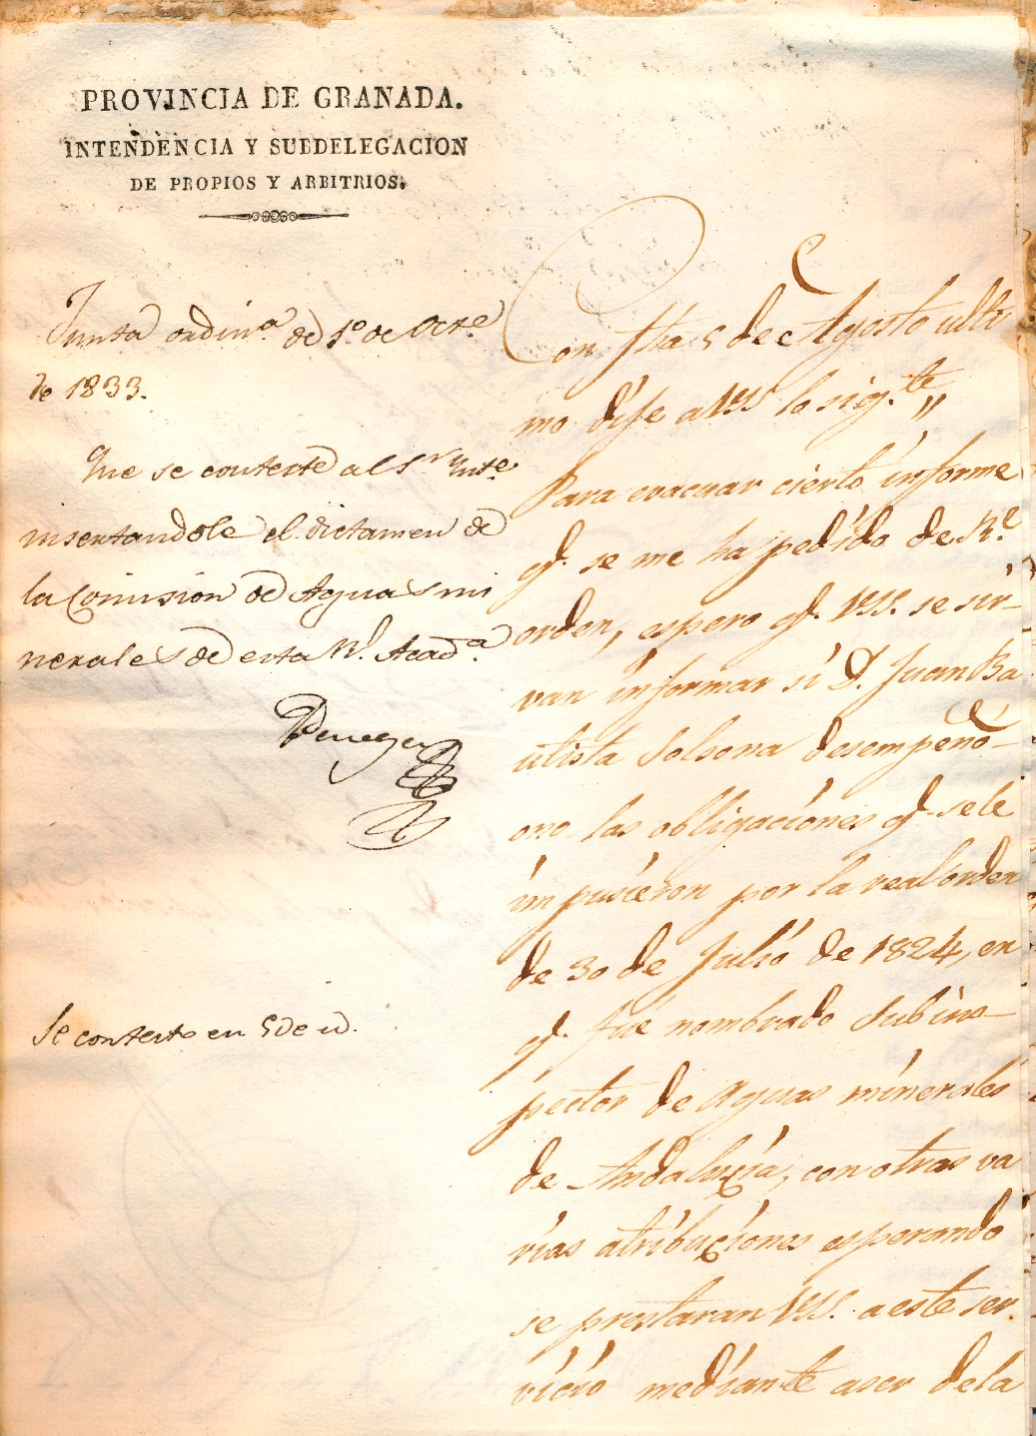 PROVINCIA DE GRANADA.
INTENDENCIA Y SUBDELEGACION
DE PROPIOS Y ARBITRIOS.
Junta ordin.ª de 1.º de Oct.e
de 1833.
Que se conteste al S.r Int.e
insertandole el dictamen de
la Comision de Aguas mi
nerales de esta R.l Acad.ª
Se contesto en 5 de id.
Con fha 5 de Agosto ulti
mo dije a VSS lo sig.te "
Para evacuar cierto informe
q.e se me ha pedido de R.l
orden, espero q.e VSS. se sir-
van informar si D. Juan Ba
utista Solsona desempeñó
ono las obligaciones q.e sele
impusieron por la real orden
de 30 de Julio de 1824, en
q.e fue nombrado Subins-
pector de aguas minerales
de Andalucia, con otras va
rias atribuciones esperando
se prestaran VSS. a este ser.
vicio mediante a ser dela